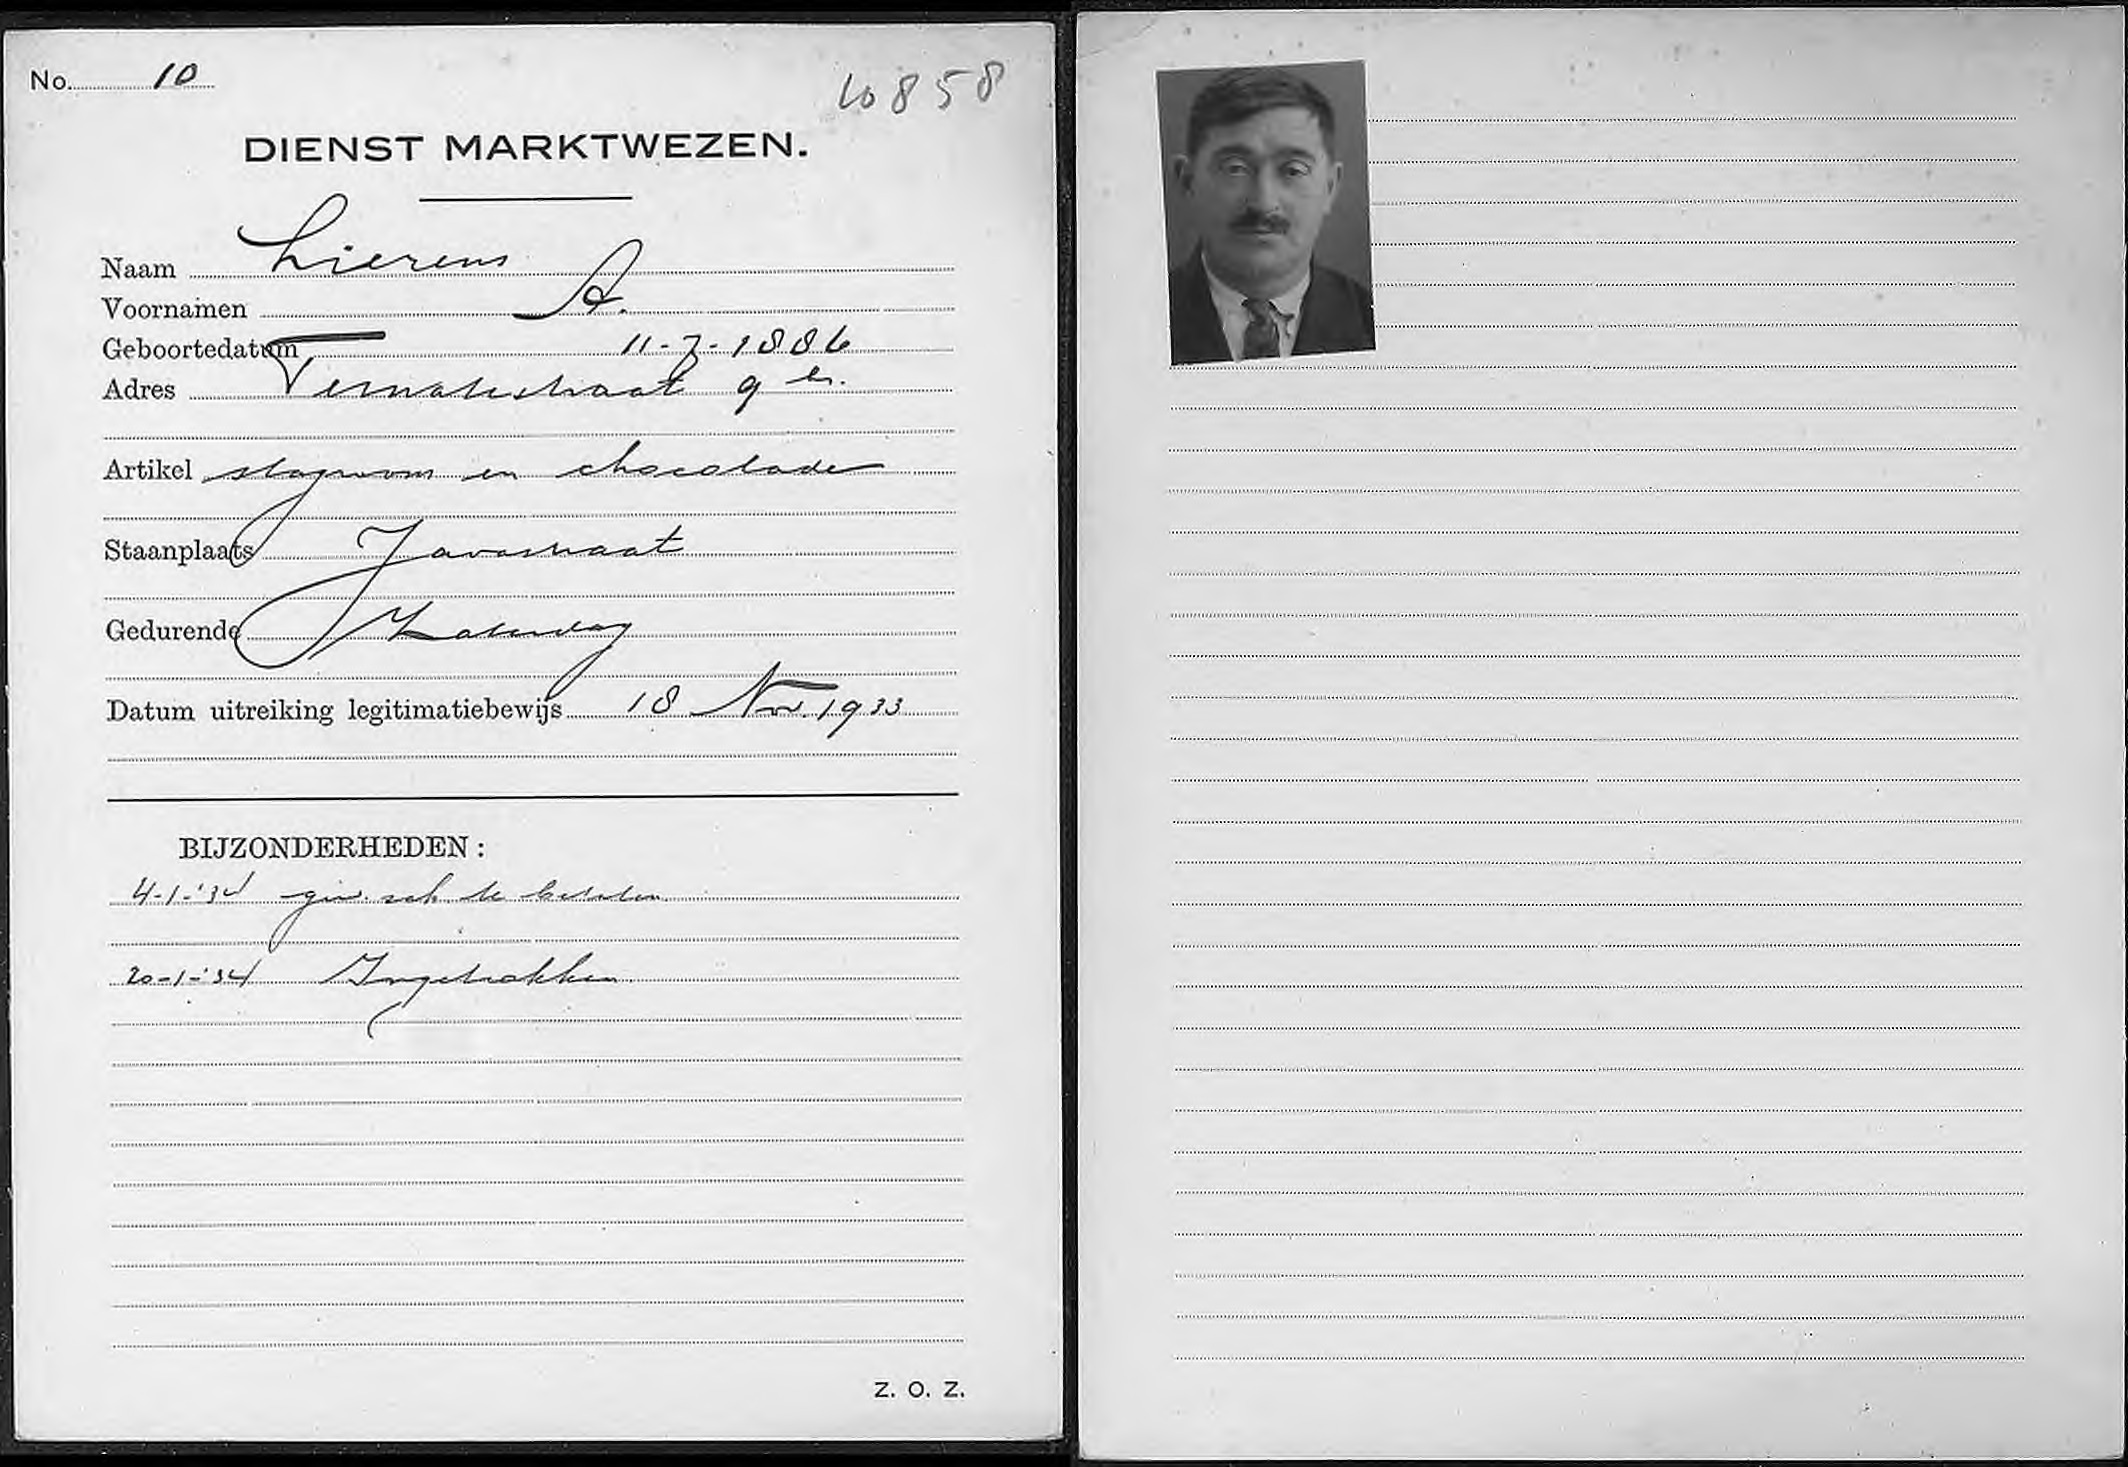 No. 10
10858
DIENST MARKTWEZEN.
Naam Lierens
Voornamen A.
Geboortedatum 11-7-1886
Adres Ternatestraat 9 hs.
Artikel slagroom en chocolade
Staanplaats Javastraat
Gedurende Zaterdag
Datum uitreiking legitimatiebewijs 18 Nov. 1933
BIJZONDERHEDEN :
4-1-'34 gew. sch. te betalen
20-1-'34 Ingetrokken
Z. O. Z.